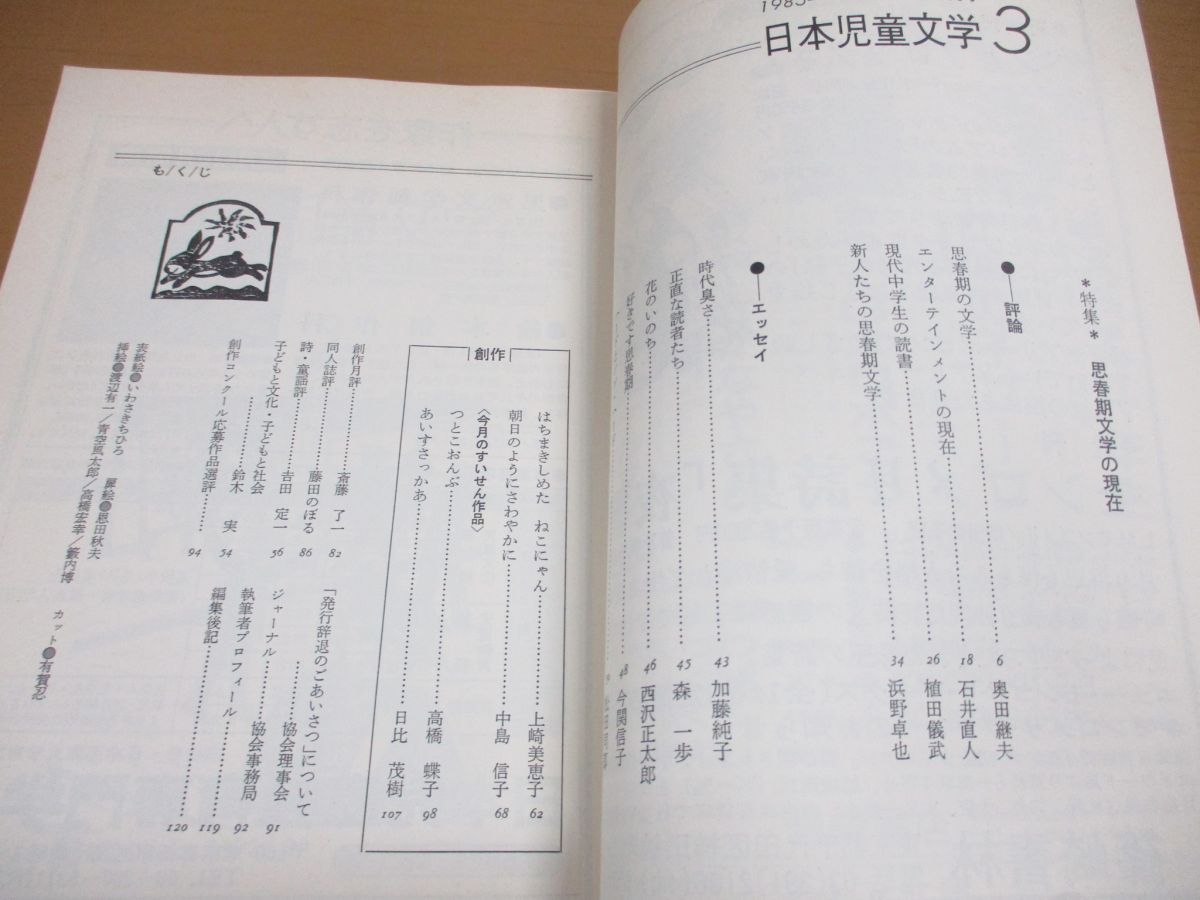 1985
日本児童文学 3
*特集* 思春期文学の現在
●――評論
思春期の文学…………6 奥田継夫
エンターテインメントの現在…………18 石井直人
現代中学生の読書…………26 植田儀武
新人たちの思春期文学…………34 浜野卓也
●――エッセイ
時代臭さ…………43 加藤純子
正直な読者たち…………45 森 一歩
花のいのち…………46 西沢正太郎
好きです思春期…………48 今関信子
も/く/じ
創作
はちまきしめた ねこにゃん…………上崎美恵子 62
朝日のようにさわやかに…………中島 信子 68
〈今月のすいせん作品〉
つとこおんぶ…………高橋 蝶子 98
あいすさっかあ…………日比 茂樹 107
創作月評…………斎藤 了一 82
同人誌評…………藤田のぼる 86
詩・童謡評…………吉田 定一 56
子どもと文化・子どもと社会
…………鈴木 実 54
創作コンクール応募作品選評…………94
「発行辞退のごあいさつ」について
…………協会理事会 91
ジャーナル…………協会事務局 92
執筆者プロフィール…………119
編集後記…………120
表紙絵●いわさきちひろ 扉絵●恩田秋夫
挿絵●渡辺有一/青空風太郎/高橋宏幸/籔内博
カット●有賀忍